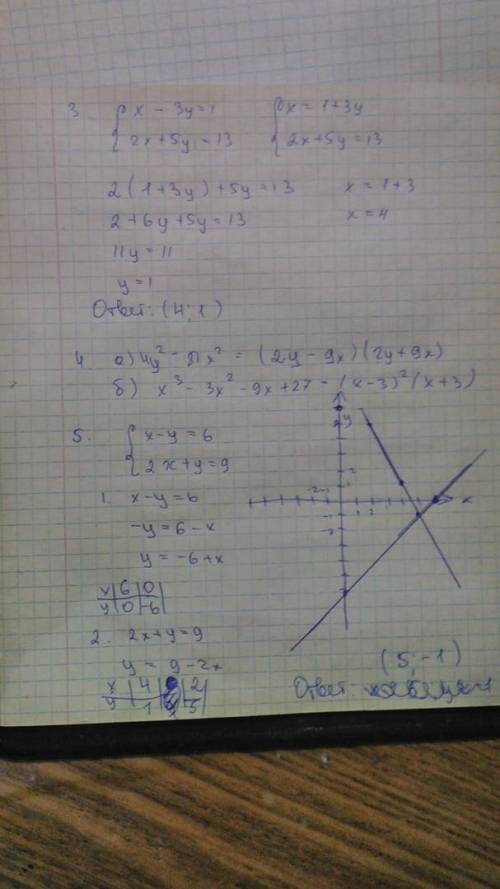 3. { x - 3y = 1 { x = 1+3y
{ 2x+5y = 13 { 2x+5y = 13
2(1+3y)+5y = 13 x = 1+3
2+6y+5y = 13 x = 4
11y = 11
y = 1
Ответ: (4; 1)
4 а) 4y² - 81x² = (2y - 9x)(2y+9x)
б) x³ - 3x² - 9x + 27 = (x-3)²(x+3)
5. { x-y = 6
{ 2x+y = 9
1. x-y = 6
-y = 6-x
y = -6+x
x | 6 | 0 |
y | 0 | -6 |
2. 2x+y = 9
y = 9-2x
x | 4 | 2 |
y | 1 | 5 |
y
2
1
-2 -1 1 2 x
-1
-2
(5; -1)
Ответ: